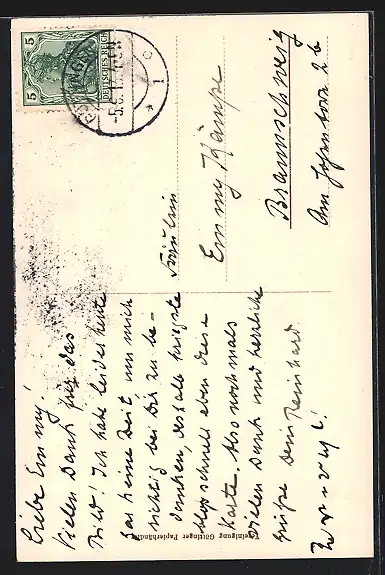 5 5
DEUTSCHES REICH
Fräulein
Emmy Kämpe
Braunschweig
Am 2b
Liebe Emmy!
Vielen Dank für das
Bild! Ich habe leider heute
gar keine Zeit um mich
richtig bei Dir zu be-
danken, deshalb kriegste
schnell eben diese
Karte. Also nochmals
vielen Dank und herzliche
Grüße Dein Reinhard
Vereinigung Göttinger Papierhändler